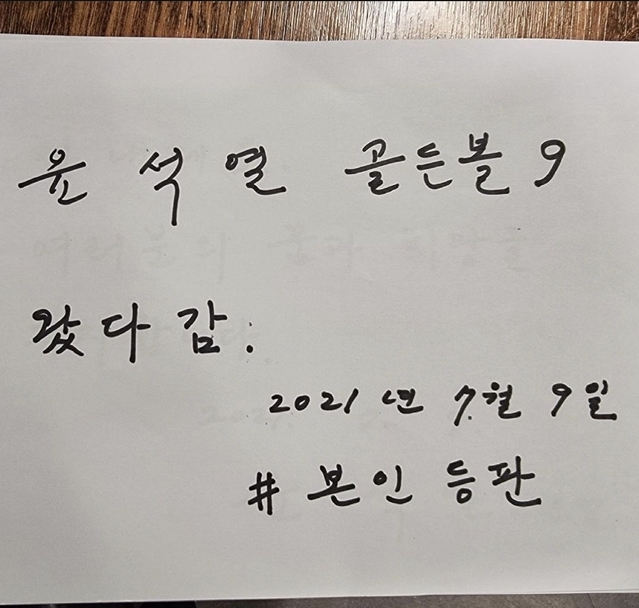 윤석열 골든볼 9
왔다 감.
2021년 7월 9일
# 본인 등판